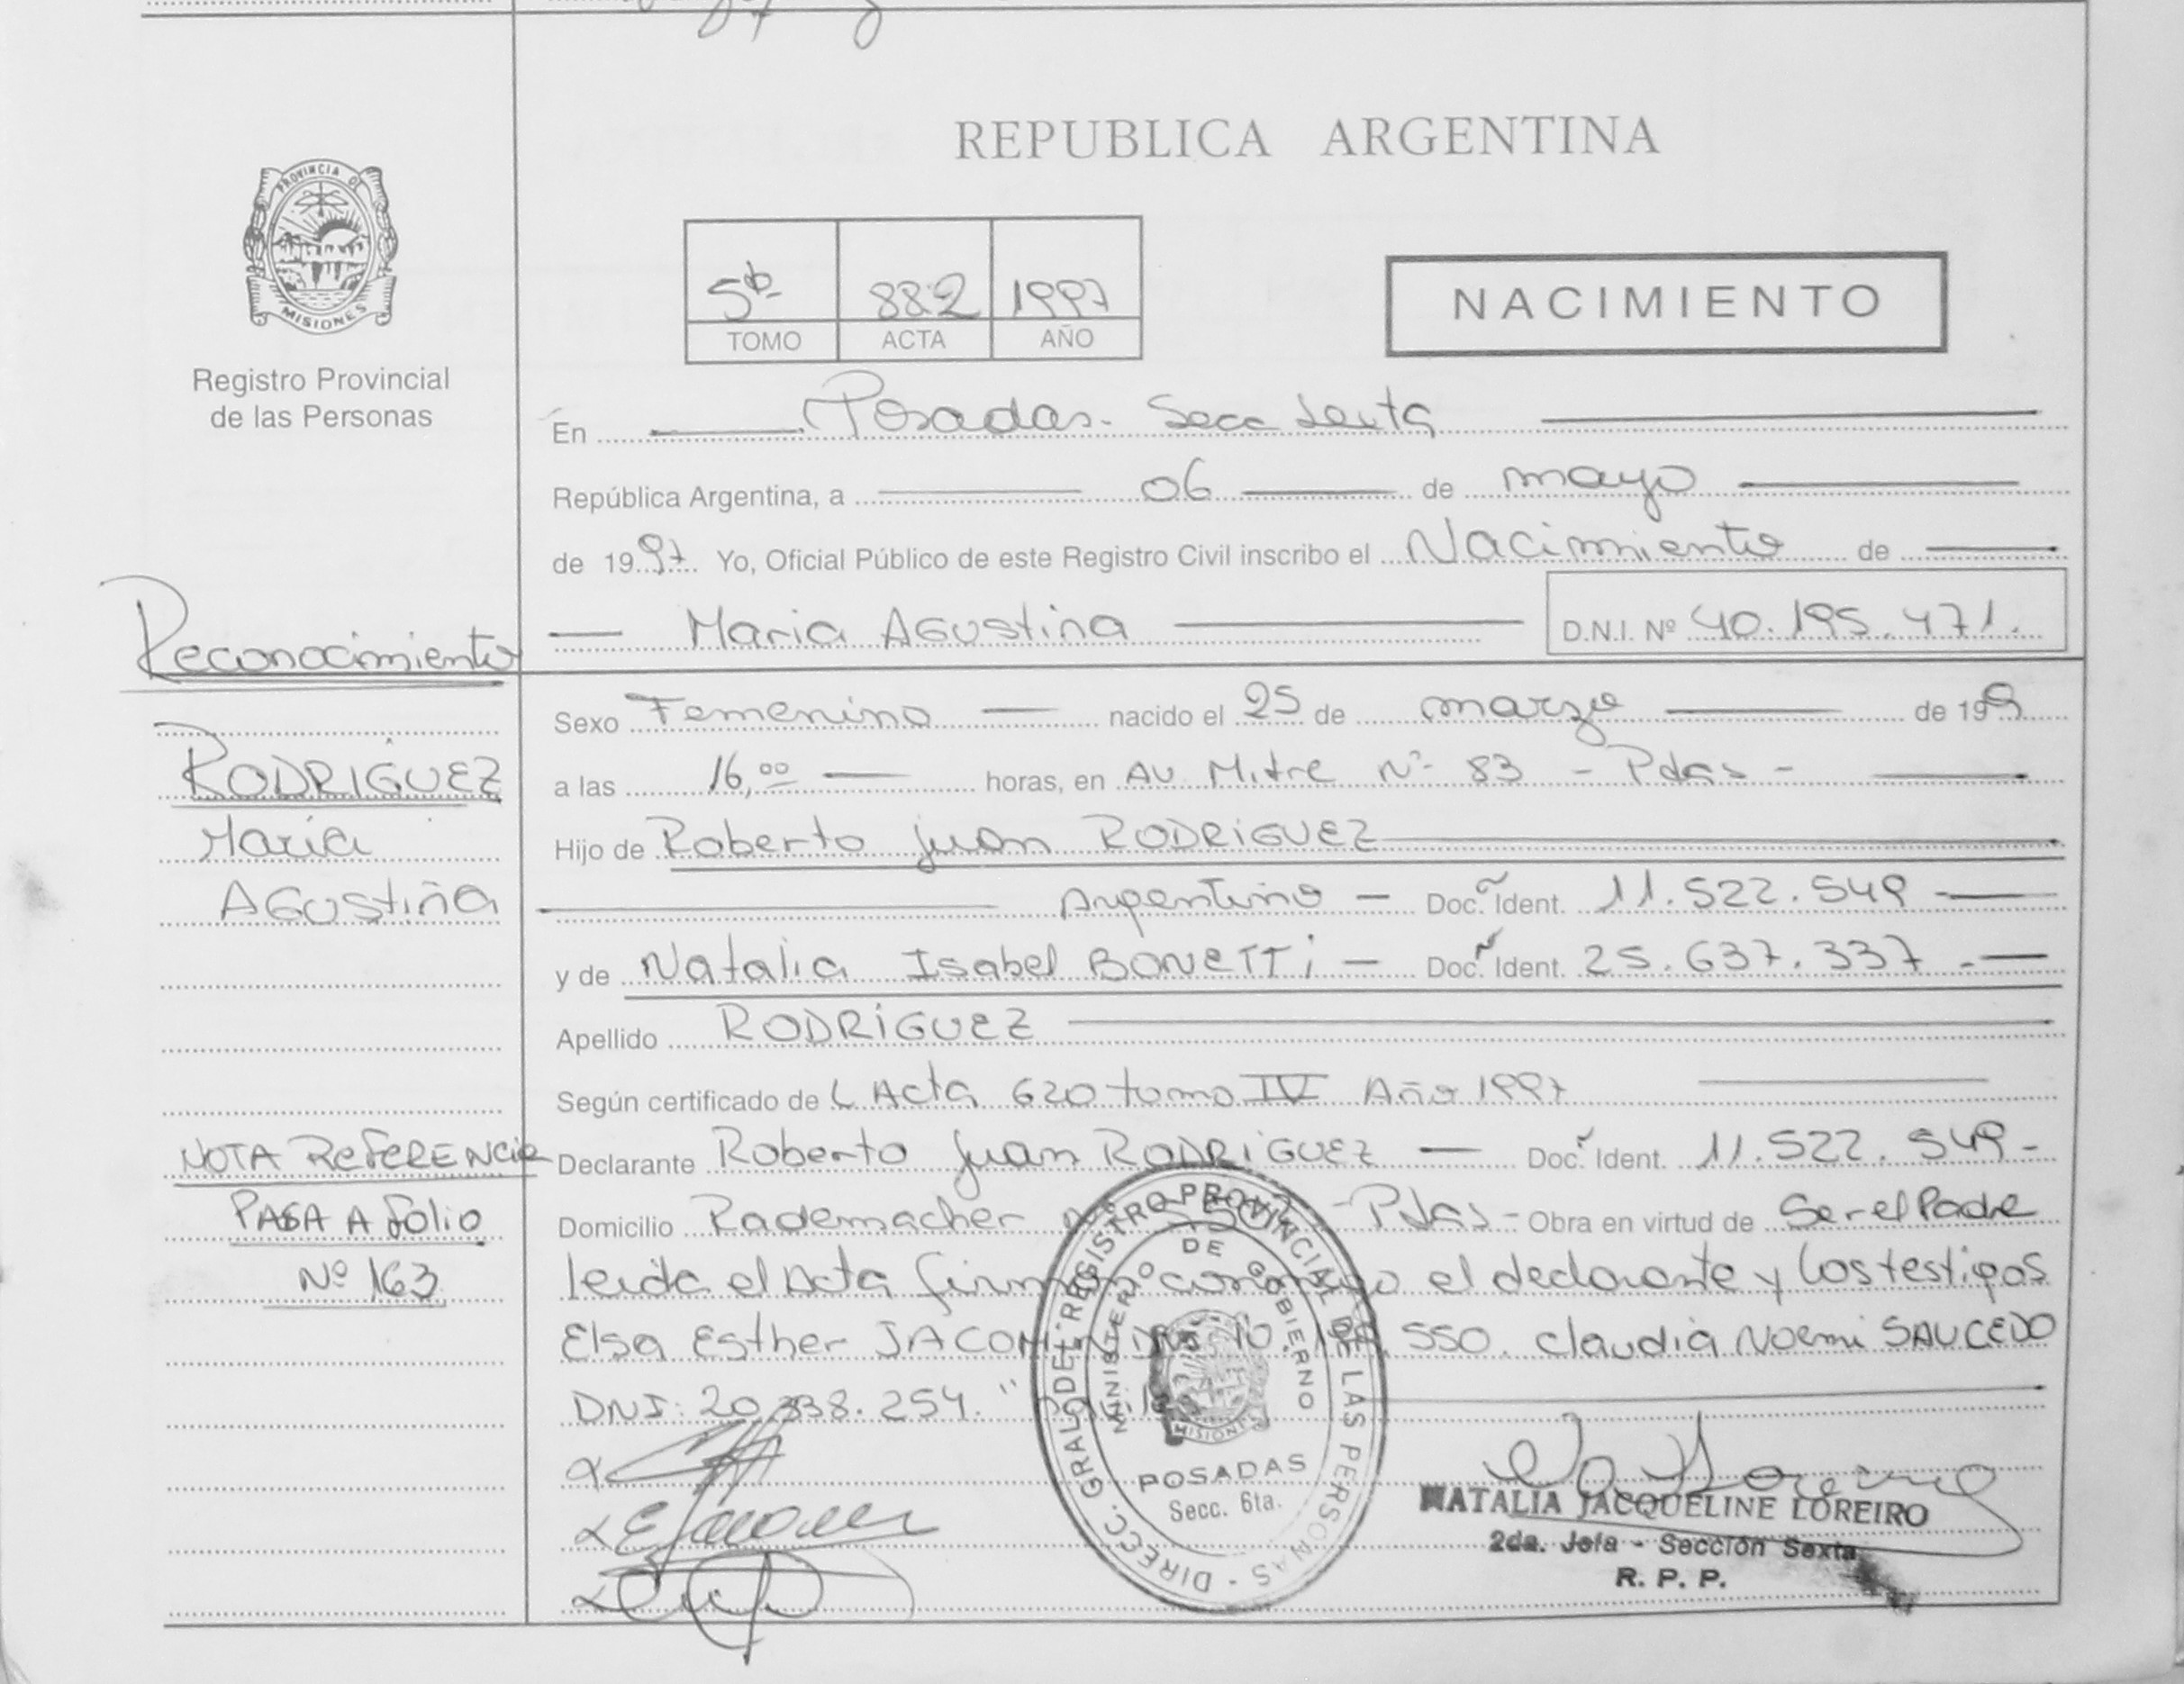 REPUBLICA ARGENTINA
PROVINCIA DE
MISIONES
Registro Provincial
de las Personas
5to 882 1997
TOMO ACTA AÑO
NACIMIENTO
En Posadas. Secc Sexta
República Argentina, a 06 de mayo
de 1997. Yo, Oficial Público de este Registro Civil inscribo el Nacimiento de
Maria Agustina D.N.I. Nº 40.195.471.
Reconocimiento
RODRIGUEZ
Maria
Agustina
NOTA REFERENCIA
PASA A folio
Nº 163
Sexo Femenino nacido el 25 de marzo de 199
a las 16,00 horas, en Av. Mitre Nº 83 - Pdas -
Hijo de Roberto Juan RODRIGUEZ
Argentino - Doc. Ident. 11.522.549
y de Natalia Isabel BONETTI - Doc. Ident. 25.637.337.-
Apellido RODRIGUEZ
Según certificado de Acta 620 tomo IV Año 1997
Declarante Roberto Juan RODRIGUEZ Doc. Ident. 11.522.549-
Domicilio Rademacher - Pdas - Obra en virtud de Ser el Padre
leida el Acta firman conmigo el declarante y los testigos
Elsa Esther 550. Claudia Noemi SAUCEDO
DNI: 20.338.254.
DIRECC. GRAL DEL REGISTRO PROVINCIAL DE LAS PERSONAS -
MINISTERIO DE GOBIERNO
MISIONES
POSADAS
Secc. 6ta.
NATALIA JACQUELINE LOREIRO
2da. Jefa - Sección Sexta
R. P. P.